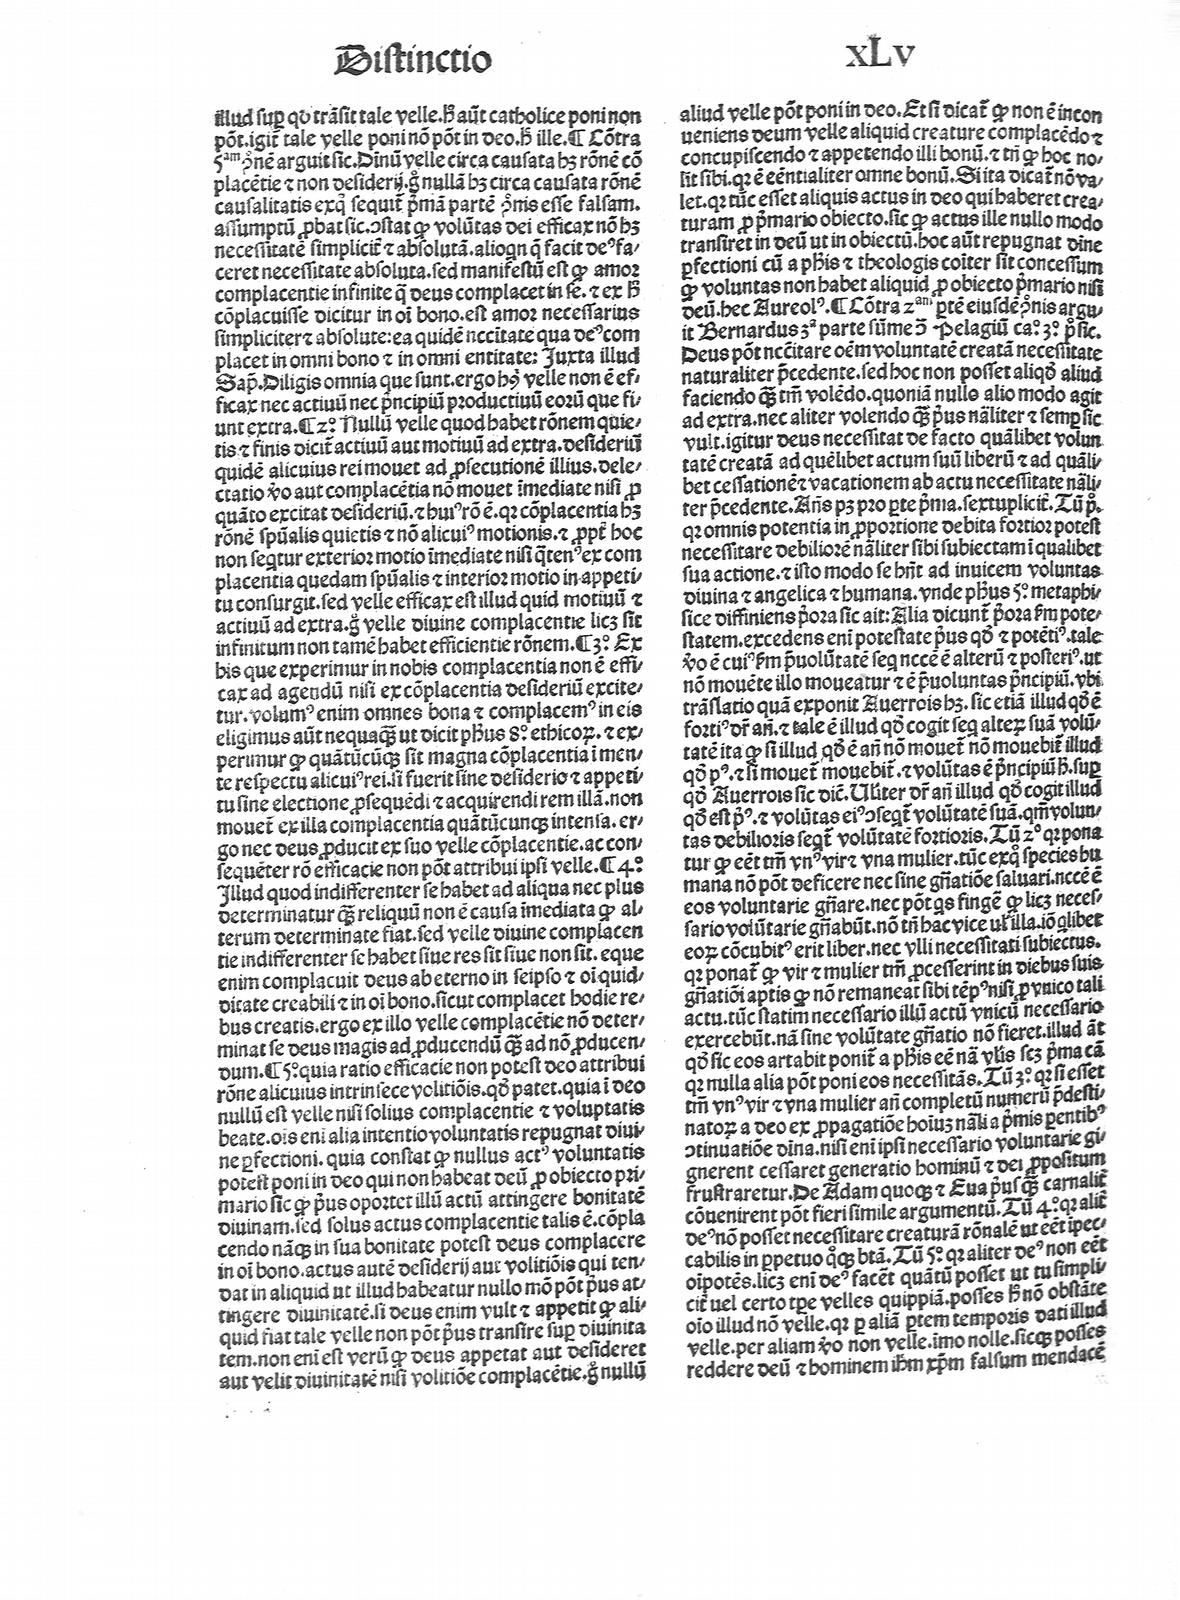 Distinctio
xLv
illud suꝑ qd̄ trāsit tale velle.h̄ aūt catholice poni non
pōt.igit̄ tale velle poni nō pōt in deo.h̄ ille.¶ Cōtra
5ᵃᵐ ꝯ̄nē arguit sic.Diuinū velle circa causata hꝫ rōnē cō
placētie ⁊ non desiderij.gͦ nullā hꝫ circa causata rōnē
causalitatis exq̄ sequit̄ p̄mā partē ꝯ̄nis esse falsam.
assumptū ꝓbat sic.ꝯstat ꝙ volūtas dei efficax nō hꝫ
necessitatē simplicit̄ ⁊ absolutā.alioqn̄ q̄ facit deꝰ fa/
ceret necessitate absoluta.sed manifestū est ꝙ amor
complacentie infinite q̄ deus complacet in se.⁊ ex h̄
cōplacuisse dicitur in oī bono.est amor necessarius
simpliciter ⁊ absolute:ea quidē nccītate qua deꝰ com
placet in omni bono ⁊ in omni entitate: Juxta illud
Sap̄.Diligis omnia que sunt.ergo hꝰ velle non ē ef/
ficax nec actiuū nec p̄ncipiū productiuū eorū que fi/
unt extra.¶ 2º Nullū velle quod habet rōnem quie/
tis ⁊ finis dicit̄ actiuū aut motiuū ad extra.desideriū
quidē alicuius rei mouet ad ꝓsecutionē illius.dele/
ctatio v̄o aut complacētia nō mouet īmediate nisi ꝓ
quāto excitat desideriū.⁊ huiꝰ rō ē.qꝛ cōplacentia hꝫ
rōnē spūalis quietis ⁊ nō alicuiꝰ motionis.⁊ ꝓpt̄ hoc
non seqtur exterior motio īmediate nisi q̄tenꝰ ex com
placentia quedam spūalis ⁊ interior motio in appeti/
tu consurgit.sed velle efficax est illud quid motiuū ⁊
actiuū ad extra.gͦ velle diuine complacentie licꝫ sit
infinitum non tamē habet efficientie rōnem.¶ 3º Ex
his que experimur in nobis complacentia non ē effi/
cax ad agendū nisi ex cōplacentia desideriū excite/
tur.volumꝰ enim omnes bona ⁊ complacemꝰ in eis
eligimus aūt nequaꝙ̄ ut dicit ph̄us 8º ethicoꝝ.⁊ ex/
perimur ꝙ quātūcūqꝫ sit magna cōplacentia ī men/
te respectu alicuiꝰ rei.si fuerit sine desiderio ⁊ appeti/
tu sine electione ꝓsequēdi ⁊ acquirendi rem illā.non
mouet̄ ex illa complacentia quātūcunqꝫ intensa.er/
go nec deus ꝓducit ex suo velle cōplacentie.ac con/
sequēter rō efficacie non pōt attribui ipsi velle.¶ 4º
Illud quod indifferenter se habet ad aliqua nec plus
determinatur ꝙ̄ reliquū non ē causa īmediata ꝙ al/
terum determinate fiat.sed velle diuine complacen
tie indifferenter se habet siue res sit siue non sit.eque
enim complacuit deus ab eterno in seipso ⁊ oī quid/
ditate creabili ⁊ in oī bono.sicut complacet hodie re/
bus creatis.ergo ex illo velle complacētie nō deter/
minat se deus magis ad ꝓducendū ꝙ̄ ad nō ꝓducen/
dum.¶ 5º quia ratio efficacie non potest deo attribui
rōne alicuius intrinsece volitiōis.qd̄ patet.quia ī deo
nullū est velle nisi solius complacentie ⁊ voluptatis
beate.oīs enī alia intentio voluntatis repugnat diui/
ne ꝑfectioni.quia constat ꝙ nullus actꝰ voluntatis
potest poni in deo qui non habeat deū ꝓ obiecto pri/
mario sic ꝙ p̄us oportet illū actū attingere bonitatē
diuinam.sed solus actus complacentie talis ē.cōpla
cendo nāqꝫ in sua bonitate potest deus complacere
in oī bono.actus autē desiderij aut volitiōis qui ten/
dat in aliquid ut illud habeatur nullo mō pōt p̄us at/
tingere diuinitatē.si deus enim vult ⁊ appetit ꝙ ali/
quid fiat tale velle non pōt p̄us transire suꝑ diuinita
tem.non enī est verū ꝙ deus appetat aut desideret
aut velit diuinitatē nisi volitiōe complacētie.gͦ nullū
aliud velle pōt poni in deo.Et si dicat̄ ꝙ non ē incon
ueniens deum velle aliquid creature complacēdo ⁊
concupiscendo ⁊ appetendo illi bonū.⁊ tn̄ ꝙ hoc no/
lit sibi.qꝛ ē eēntialiter omne bonū.Si ita dicat̄ nō va/
let.qꝛ tūc esset aliquis actus in deo qui haberet crea/
turam ꝓ p̄mario obiecto.sic ꝙ actus ille nullo modo
transiret in deū ut in obiectū.hoc aūt repugnat dīne
ꝑfectioni cū a ph̄is ⁊ theologis cōiter sit concessum
ꝙ voluntas non habet aliquid ꝓ obiecto p̄mario nisi
deū.hec Aureolꝰ.¶ Cōtra 2ᵃᵐ ꝑtē eiusdē ꝯ̄nis argu/
it Bernardus 3ᵃ parte sūme ꝯ̄ Pelagiū caº 3º p̄ sic.
Deus pōt nccītare oēm voluntatē creatā necessitate
naturaliter p̄cedente.sed hoc non posset aliqd̄ aliud
faciendo ꝙ̄ tm̄ volēdo.quoniā nullo alio modo agit
ad extra.nec aliter volendo ꝙ̄ p̄us nāliter ⁊ semꝑ sic
vult.igitur deus necessitat de facto quālibet volun
tatē creatā ad quēlibet actum suū liberū ⁊ ad quāli/
bet cessationē ⁊ vacationem ab actu necessitate nāli/
ter p̄cedente.Añs pꝫ pro ꝑte p̄ma.sextuplicit̄.Tū pº.
qꝛ omnis potentia in ꝓportione debita fortior potest
necessitare debiliorē nāliter sibi subiectam ī qualibet
sua actione.⁊ isto modo se hn̄t ad inuicem voluntas
diuina ⁊ angelica ⁊ humana.vnde ph̄us 5º metaphi/
sice diffiniens p̄ora sic ait:Alia dicunt̄ p̄ora s̄m pote/
statem.excedens enī potestate p̄us qd̄ ⁊ potētiꝰ.tale
v̄o ē cuiꝰ s̄m p̄uolūtatē seq nccē ē alterū ⁊ posteriꝰ.ut
nō mouēte illo moueatur ⁊ ē p̄uoluntas p̄ncipiū.vbi
trāslatio quā exponit Auerrois hꝫ.sic etiā illud qd̄ ē
fortiꝰ dr̄ añ.⁊ tale ē illud qd̄ cogit seq alteꝝ suā volū/
tatē ita ꝙ si illud qd̄ ē añ nō mouet̄ nō mouebit̄ illud
qd̄ pꝰ.⁊ si mouet̄ mouebit̄.⁊ volūtas ē p̄ncipiū h̄.suꝑ
qd̄ Auerrois sic dic̄.Uliter dr̄ añ illud qd̄ cogit illud
qd̄ est pꝰ.⁊ volūtas eiꝰ ꝯseqt̄ volūtatē suā.qm̄ volun/
tas debilioris seqt̄ volūtatē fortioris.Tū 2º qꝛ pona
tur ꝙ eēt tm̄ vnꝰ vir ⁊ vna mulier.tūc exq̊ species hu
mana nō pōt deficere nec sine gn̄atiōe saluari.nccē ē
eos voluntarie gn̄are.nec pōt qs fingē ꝙ licꝫ neces/
sario volūtarie gn̄abūt.nō tn̄ hac vice uł illa.iō qlibet
eoꝝ cōcubitꝰ erit liber.nec vlli necessitati subiectus.
qꝛ ponat̄ ꝙ vir ⁊ mulier tm̄ ꝓcesserint in diebus suis
gn̄atiōi aptis ꝙ nō remaneat sibi tēpꝰ nisi ꝓ vnico tali
actu.tūc statim necessario illū actū vnicū necessario
exercebūt.nā sine volūtate gn̄atio nō fieret.illud āt
qd̄ sic eos artabit ponit̄ a ph̄is eē nā vl̄is scꝫ p̄ma cā
qꝛ nulla alia pōt poni eos necessitās.Tū 3º qꝛ si esset
tm̄ vnꝰ vir ⁊ vna mulier añ completū numerū p̄desti/
natoꝝ a deo ex ꝓpagatiōe hoīuꝫ nāli a p̄mis ꝑentibꝰ
ꝯtinuatiōe dīna.nisi enī ipsi necessario voluntarie gi/
gnerent cessaret generatio hominū ⁊ dei ꝓpositum
frustraretur.De Adam quoqꝫ ⁊ Eua p̄usꝙ̄ carnalit̄
cōuenirent pōt fieri simile argumentū.Tū 4º qꝛ alit̄
deꝰ nō posset necessitare creaturā rōnalē ut eēt ipec/
cabilis in ꝑpetuo q̊qꝫ btā.Tū 5º qꝛ aliter deꝰ non eēt
oīpotēs.licꝫ enī deꝰ facēt quātū posset ut tu simpli/
cit̄ uel certo tꝑe velles quippiā.posses h̄ nō obstāte
oīo illud nō velle.qꝛ ꝑ aliā ꝑtem temporis dati illud
velle.per aliam v̄o non velle.imo nolle.sicqꝫ posses
reddere deū ⁊ hominem ih̄m xp̄m falsum mendacē